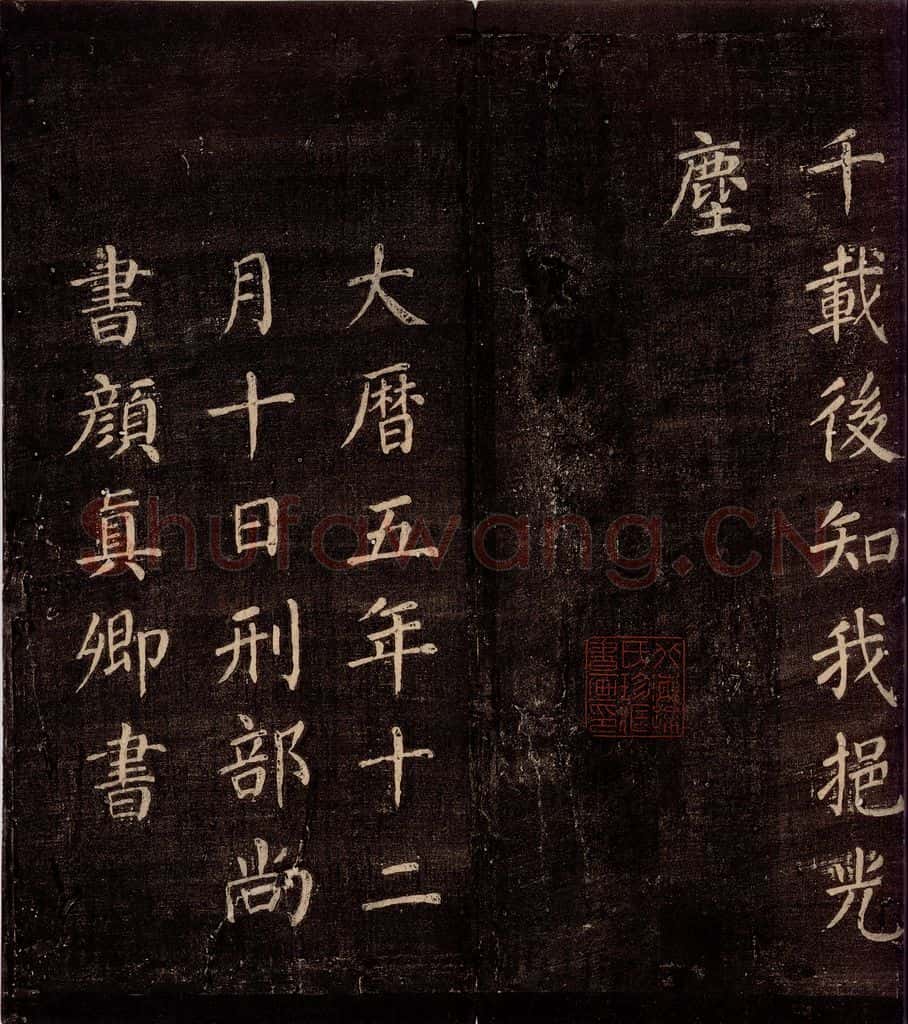 千載後知我挹光
塵
大曆五年十二
月十日刑部尚
書顔真卿書
Shufawang.CN